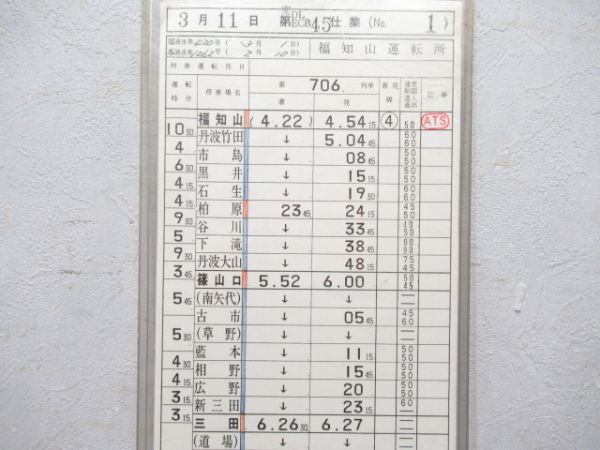 3月11日 第 変DL ECB 45仕業 (No. 1)
(3月1日) 福知山運転所
列車運転月日
運転時分 停車場名 第 706. 列車 着 発 着発線 速度制限 進入 進出 記事
福知山 (4.22) 4.54 15 ④ 50 ATS
10 30 丹波竹田 ↓ 5.04 45 60 60
4 市島 ↓ 08 45 50 50
6 30 黒井 ↓ 15 15 50 50
4 15 石生 ↓ 19 30 60 60
4 15 柏原 23 45 24 15 45 50
9 谷川 ↓ 33 45 40 50
5 下滝 ↓ 38 45 90 90
9 30 丹波大山 ↓ 48 15 75 45
3 45 篠山口 5.52 6.00 50 45
(南矢代) ↓ ↓ ―
5 45 古市 ↓ 05 45 45 60
(草野) ↓ ↓ ―
5 30 藍本 ↓ 11 15 50 50
4 30 相野 ↓ 15 45 50 50
4 15 広野 ↓ 20 50 50
3 15 新三田 ↓ 23 15 60
3 15 三田 6.26 30 6.27
(道場) ↓ ↓